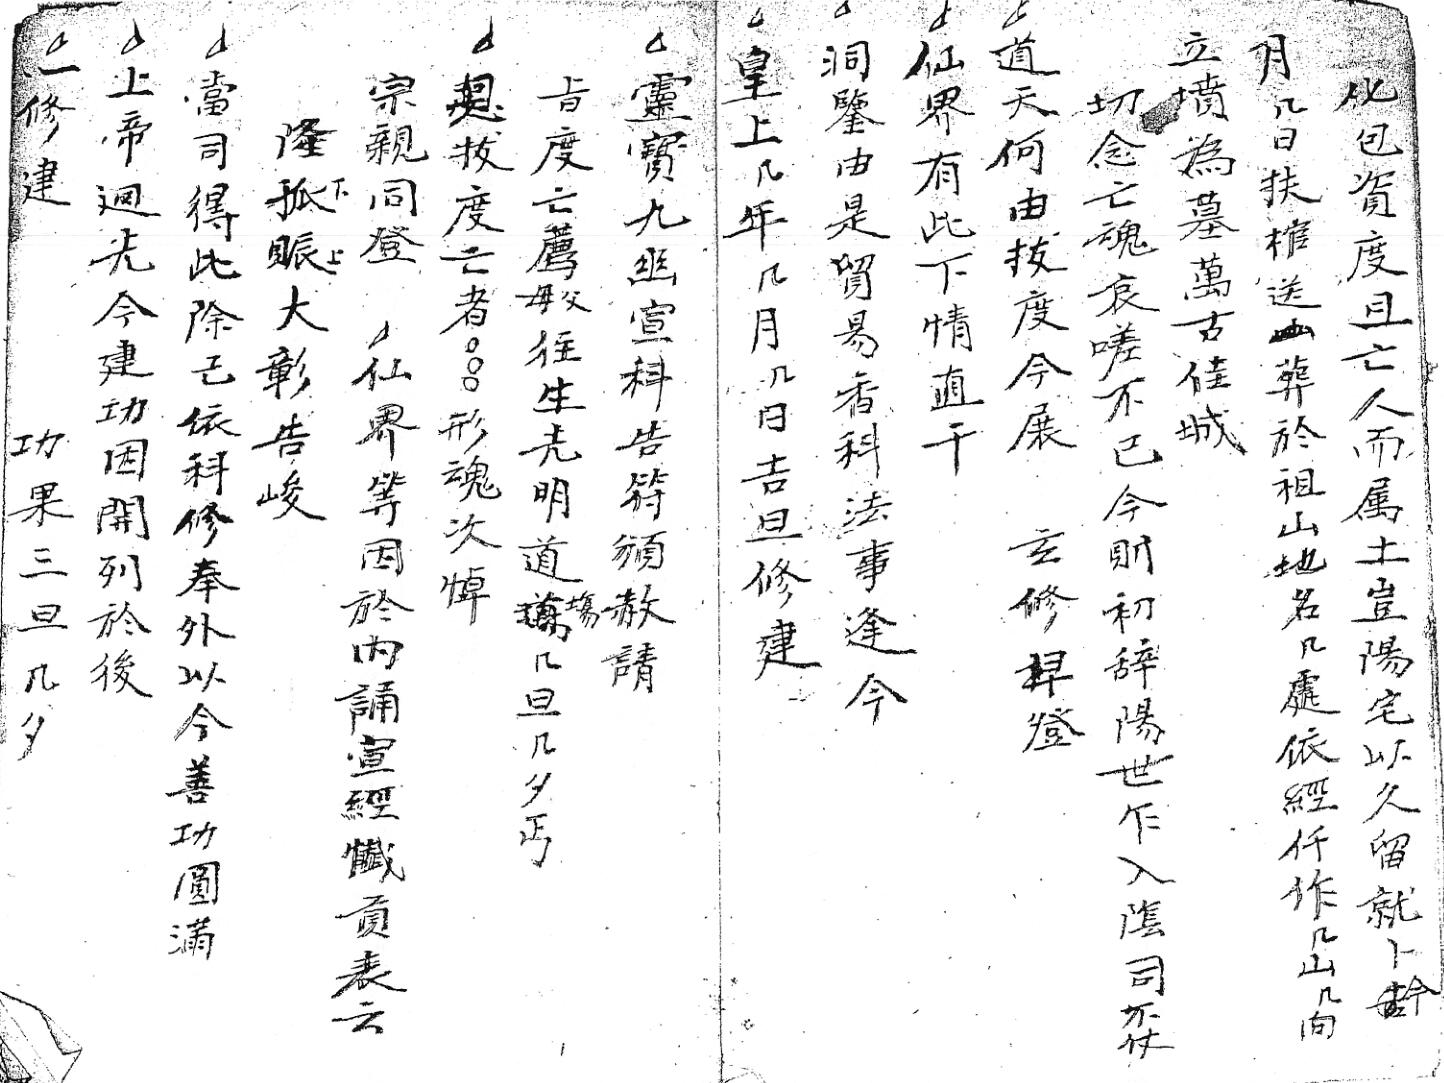 化包資度且亡人而属土豈陽宅以久留就卜今
月几日扶棺送山葬於祖山地名几處依經仟作几山几向
立墳為墓萬古佳城
切念亡魂哀嗟不已今則初辞陽世乍入陰司不仗
道天何由拔度今展 玄修早登
仙界有此下情直干
洞鑒由是貿易香科法事逢今
皇上几年几月几日吉旦修建
靈寶九幽宣科告符頒赦請
旨度亡薦母父往生光明道塲几旦几夕丐
恩拔度亡者○○○形魂次悼
宗親同登 仙界等因於內誦宣經懺貢表云
隆孤下賑上大彰告峻
當司得此除已依科修奉外以今善功圓滿
上帝廻光今建功因開列於後
一修建 功果三旦几夕